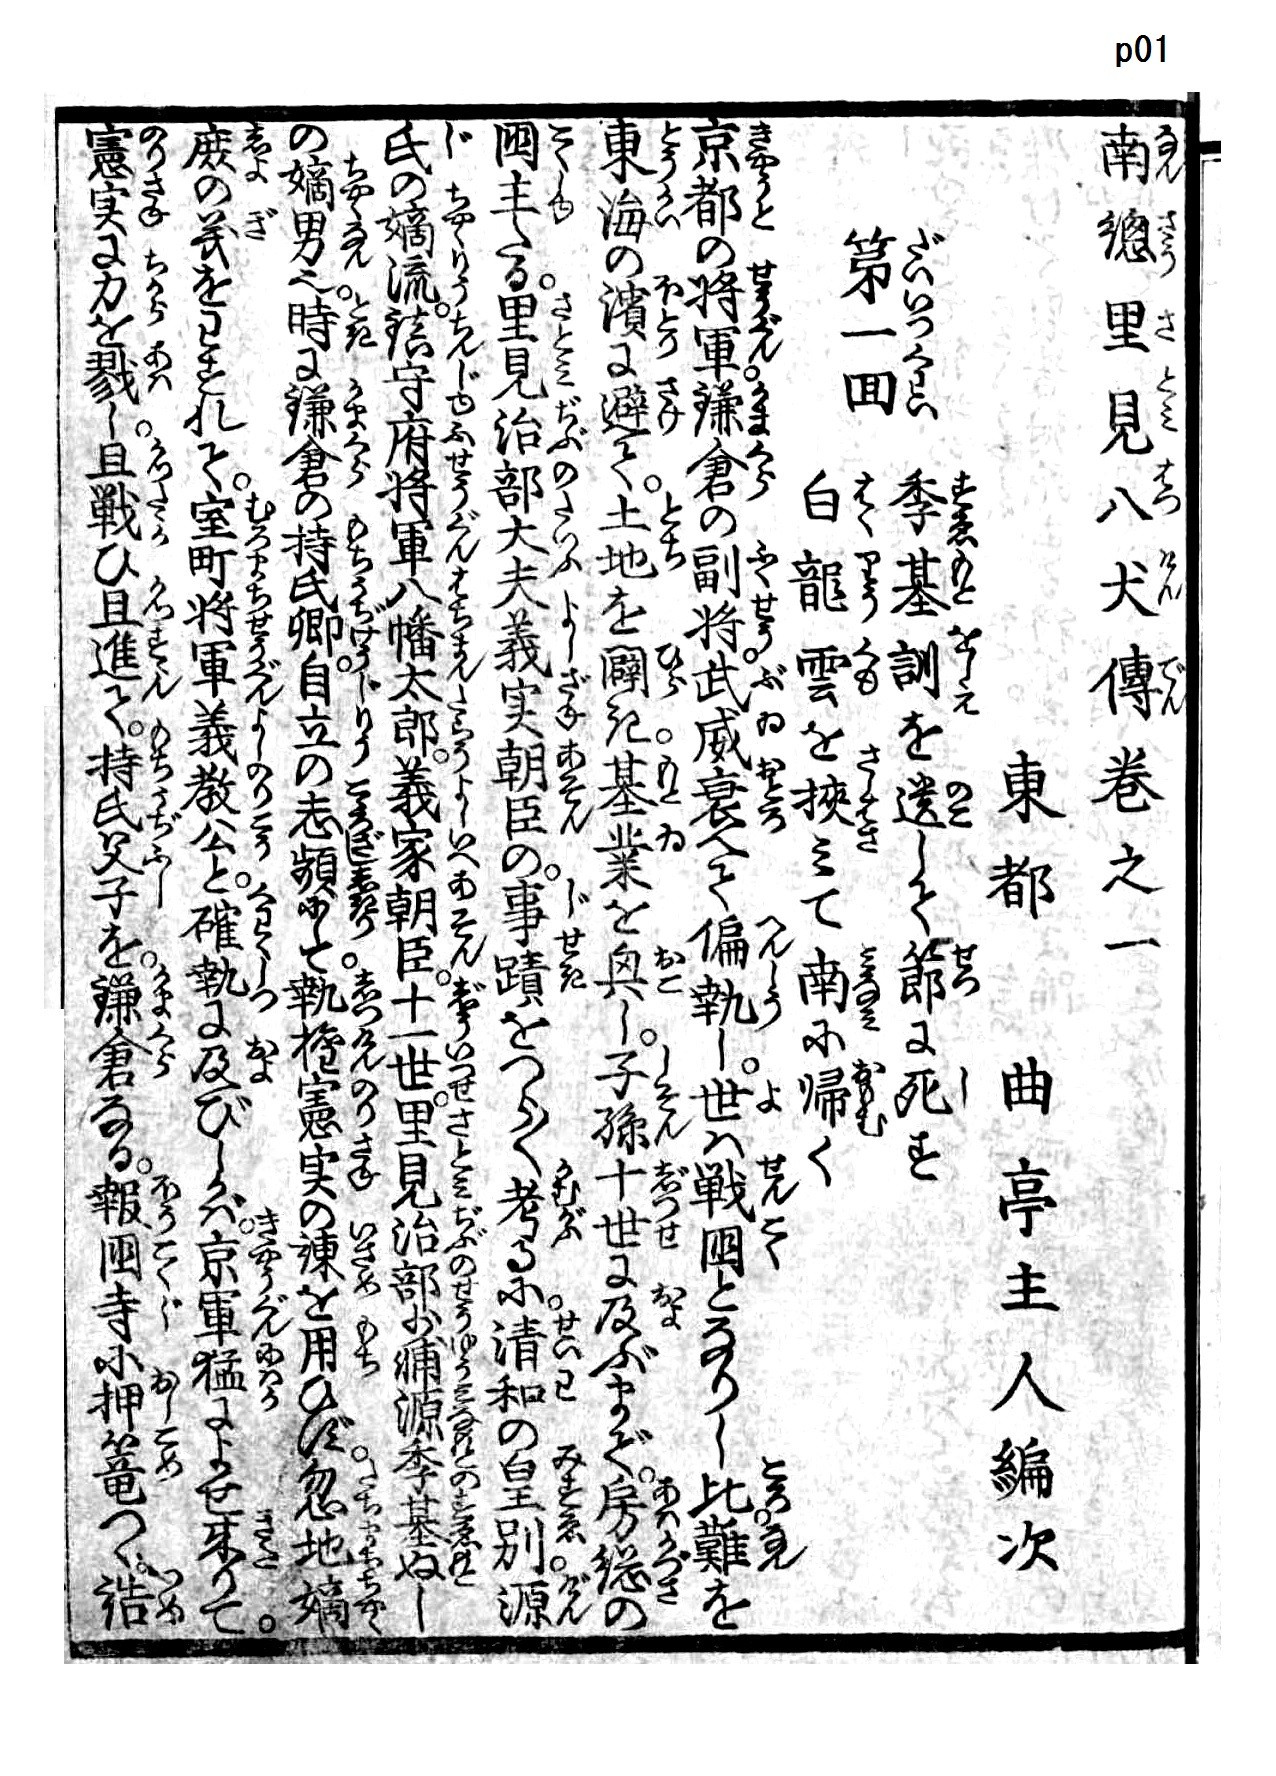 p01
南總里見八犬傳巻之一
東都 曲亭主人編次
第一回
季基訓を遺して節に死す
白龍雲を挾みて南に帰く
京都の将軍鎌倉の副将武威衰へて偏執し。世は戦国となりし比難を
東海の濱に避て。土地を闢き基業を興し。子孫十世に及ぶまで。房総の
国主たる。里見治部大夫義実朝臣の。事蹟をつら〱考るに。清和の皇別源
氏の嫡流。鎮守府将軍八幡太郎。義家朝臣。十一世。里見治部少輔源季基ぬし
の嫡男也。時に鎌倉の持氏卿。自立の志頻りにして。執権憲実の諫を用ひず。忽地嫡
庶の義をわすれて。室町将軍義教公と。確執に及びしかば。京軍猛によせ来りて。
憲実に力を戮し。且戦ひ且進て。持氏父子を。鎌倉なる。報国寺に押篭つゝ。詰